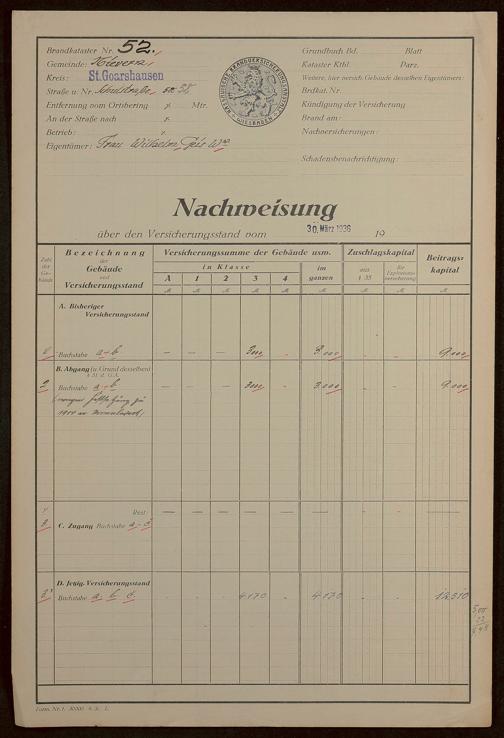 Brandkataster Nr. 52.
Gemeinde:
Kreis: St. Goarshausen
Straße u. Nr. 38
Entfernung vom Ortsbering Mtr.
An der Straße nach
Betrieb:
Eigentümer: Frau Wilhelm
NASSAUISCHE BRANDVERSICHERUNGSANSTALT WIESBADEN
Grundbuch Bd. Blatt
Kataster Ktbl. Parz.
Weitere, hier versich. Gebäude desselben Eigentümers:
Brdkat. Nr.
Kündigung der Versicherung
Brand am:
Nachversicherungen:
Schadensbenachrichtigung:
Nachweisung
über den Versicherungsstand vom 30. März 1936 19
Zahl der Gebäude
Bezeichnung der Gebäude und Versicherungsstand
Versicherungssumme der Gebäude usw.
in Klasse
A 1 2 3 4
im ganzen
Zuschlagskapital
aus § 35
für Explosionsversicherung
Beitragskapital
A. Bisheriger Versicherungsstand
2 Buchstabe a-b — — — 3000 - 3.000 - - 9.000
B. Abgang (u Grund desselben)
2 Buchstabe a-b — — — 3000 - 3.000 - - 9.000
Rest
3 C. Zugang Buchstabe a-c
D. Jetzig. Versicherungsstand
3 Buchstabe a. b. c. 4170 4170 12,510
Form. Nr. 1.